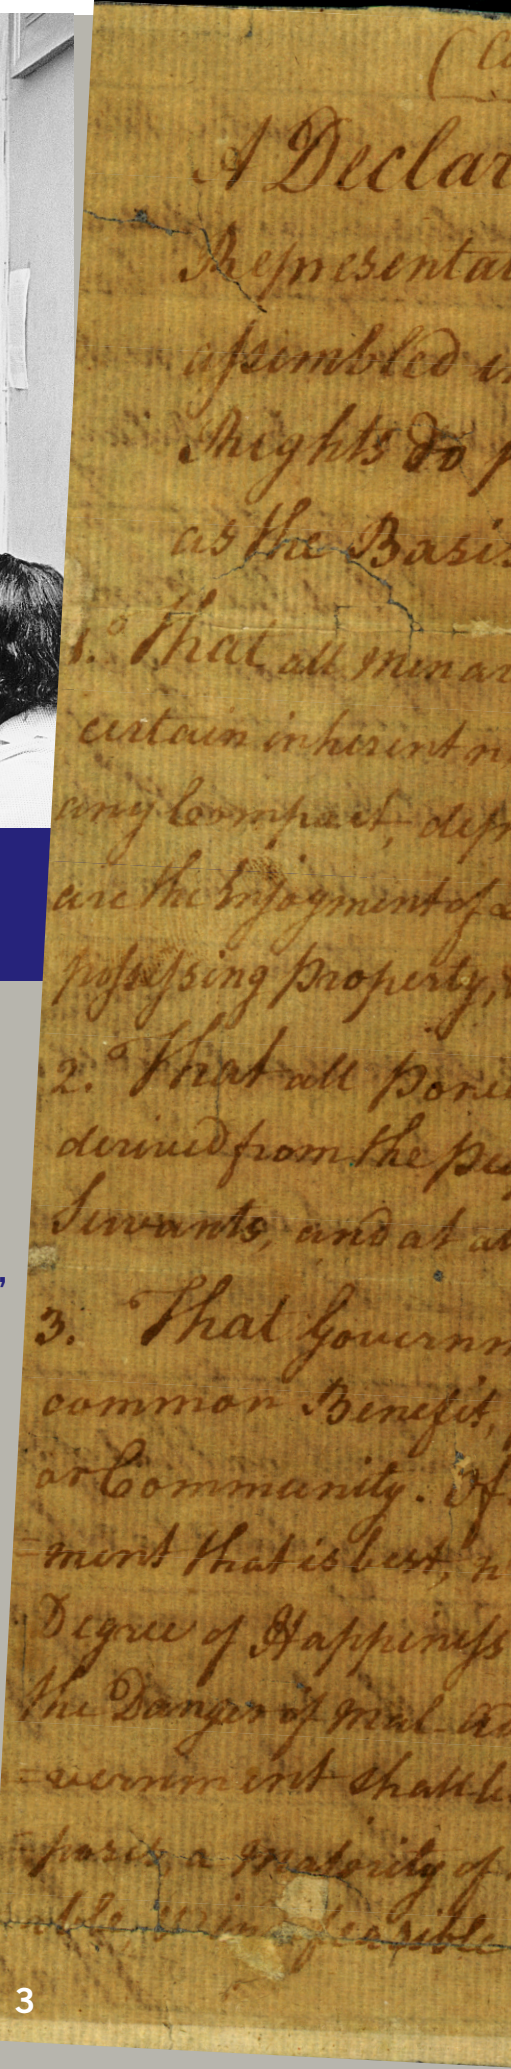 (Co
A Declar
Representat
assembled in
Rights do p
as the Basis
1.o That all men ar
certain inherent ri
any Compact, depr
are the Enjoyment of L
possessing Property,
2.o That all Powe
derived from the peo
Servants, and at al
3. That Governm
common Benefit,
or Community. Of
=ment that is best, w
Degree of Happiness
the Danger of mal-ad
=vernment shall b
=poses, a majority of
=able feasible
,
3